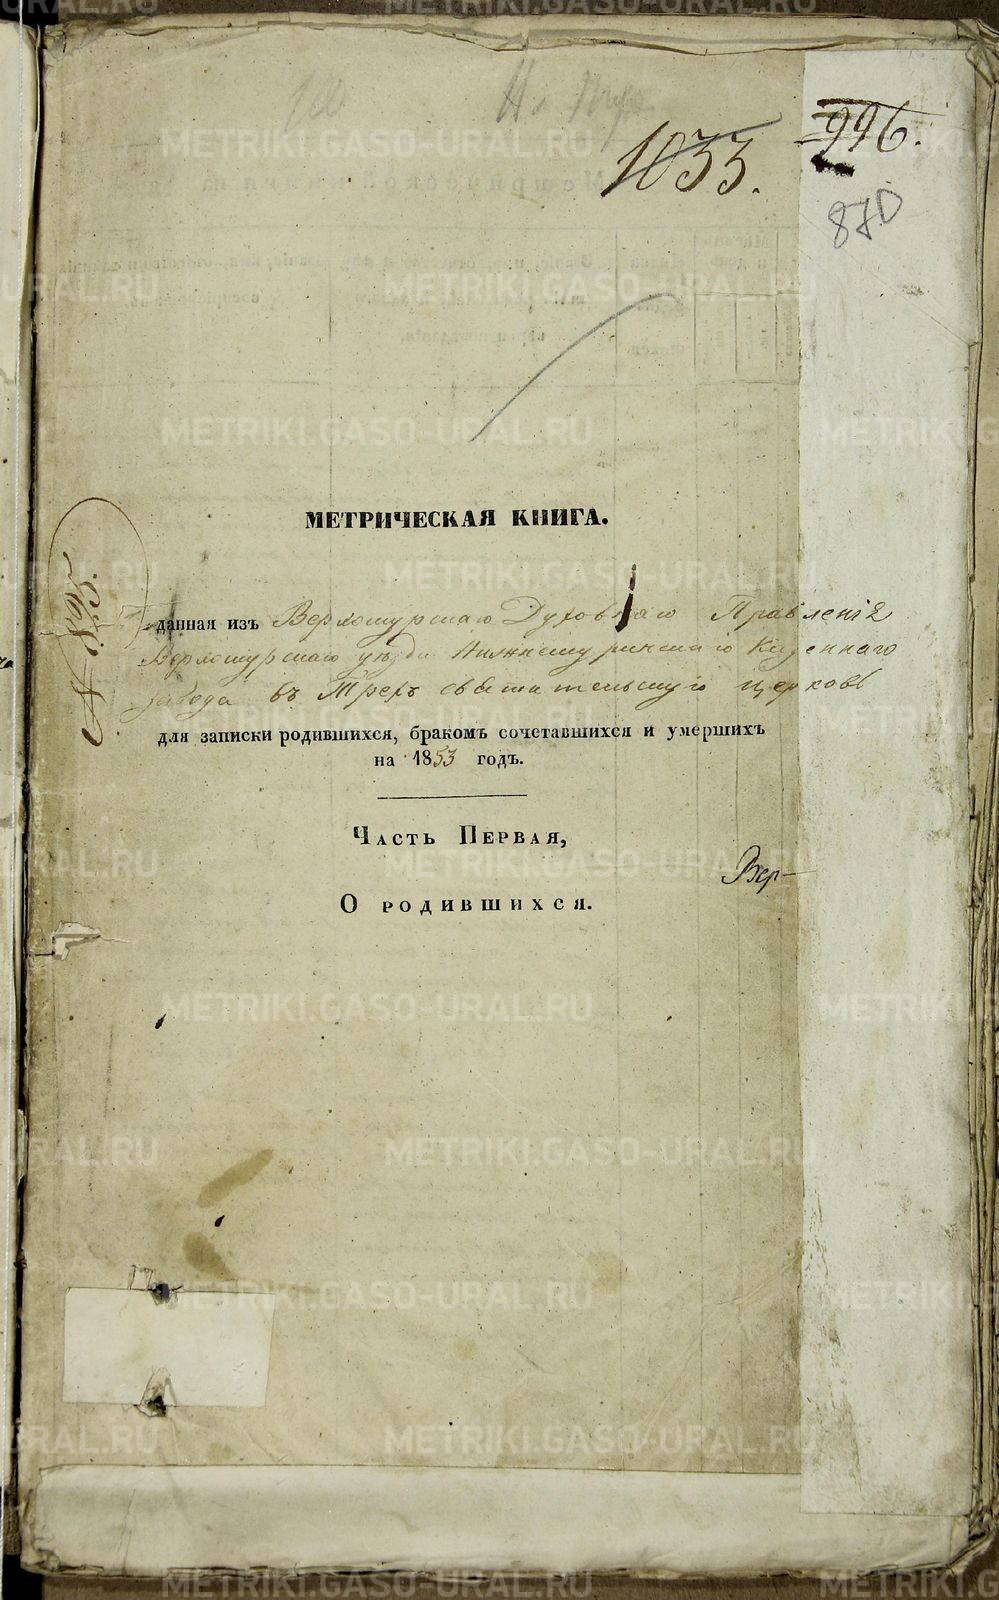 1033.
996.
870
МЕТРИЧЕСКАЯ КНИГА.
данная изъ Верхотурскаго Духовнаго Правленія
Верхотурскаго уѣзда Нижнетуринскаго Казеннаго
завода въ Трехъ святительскую церковь
для записки родившихся, бракомъ сочетавшихся и умершихъ
на 1853 годъ.
Часть Первая,
Вер-
О родившихся.
METRIKI.GASO-URAL.RU